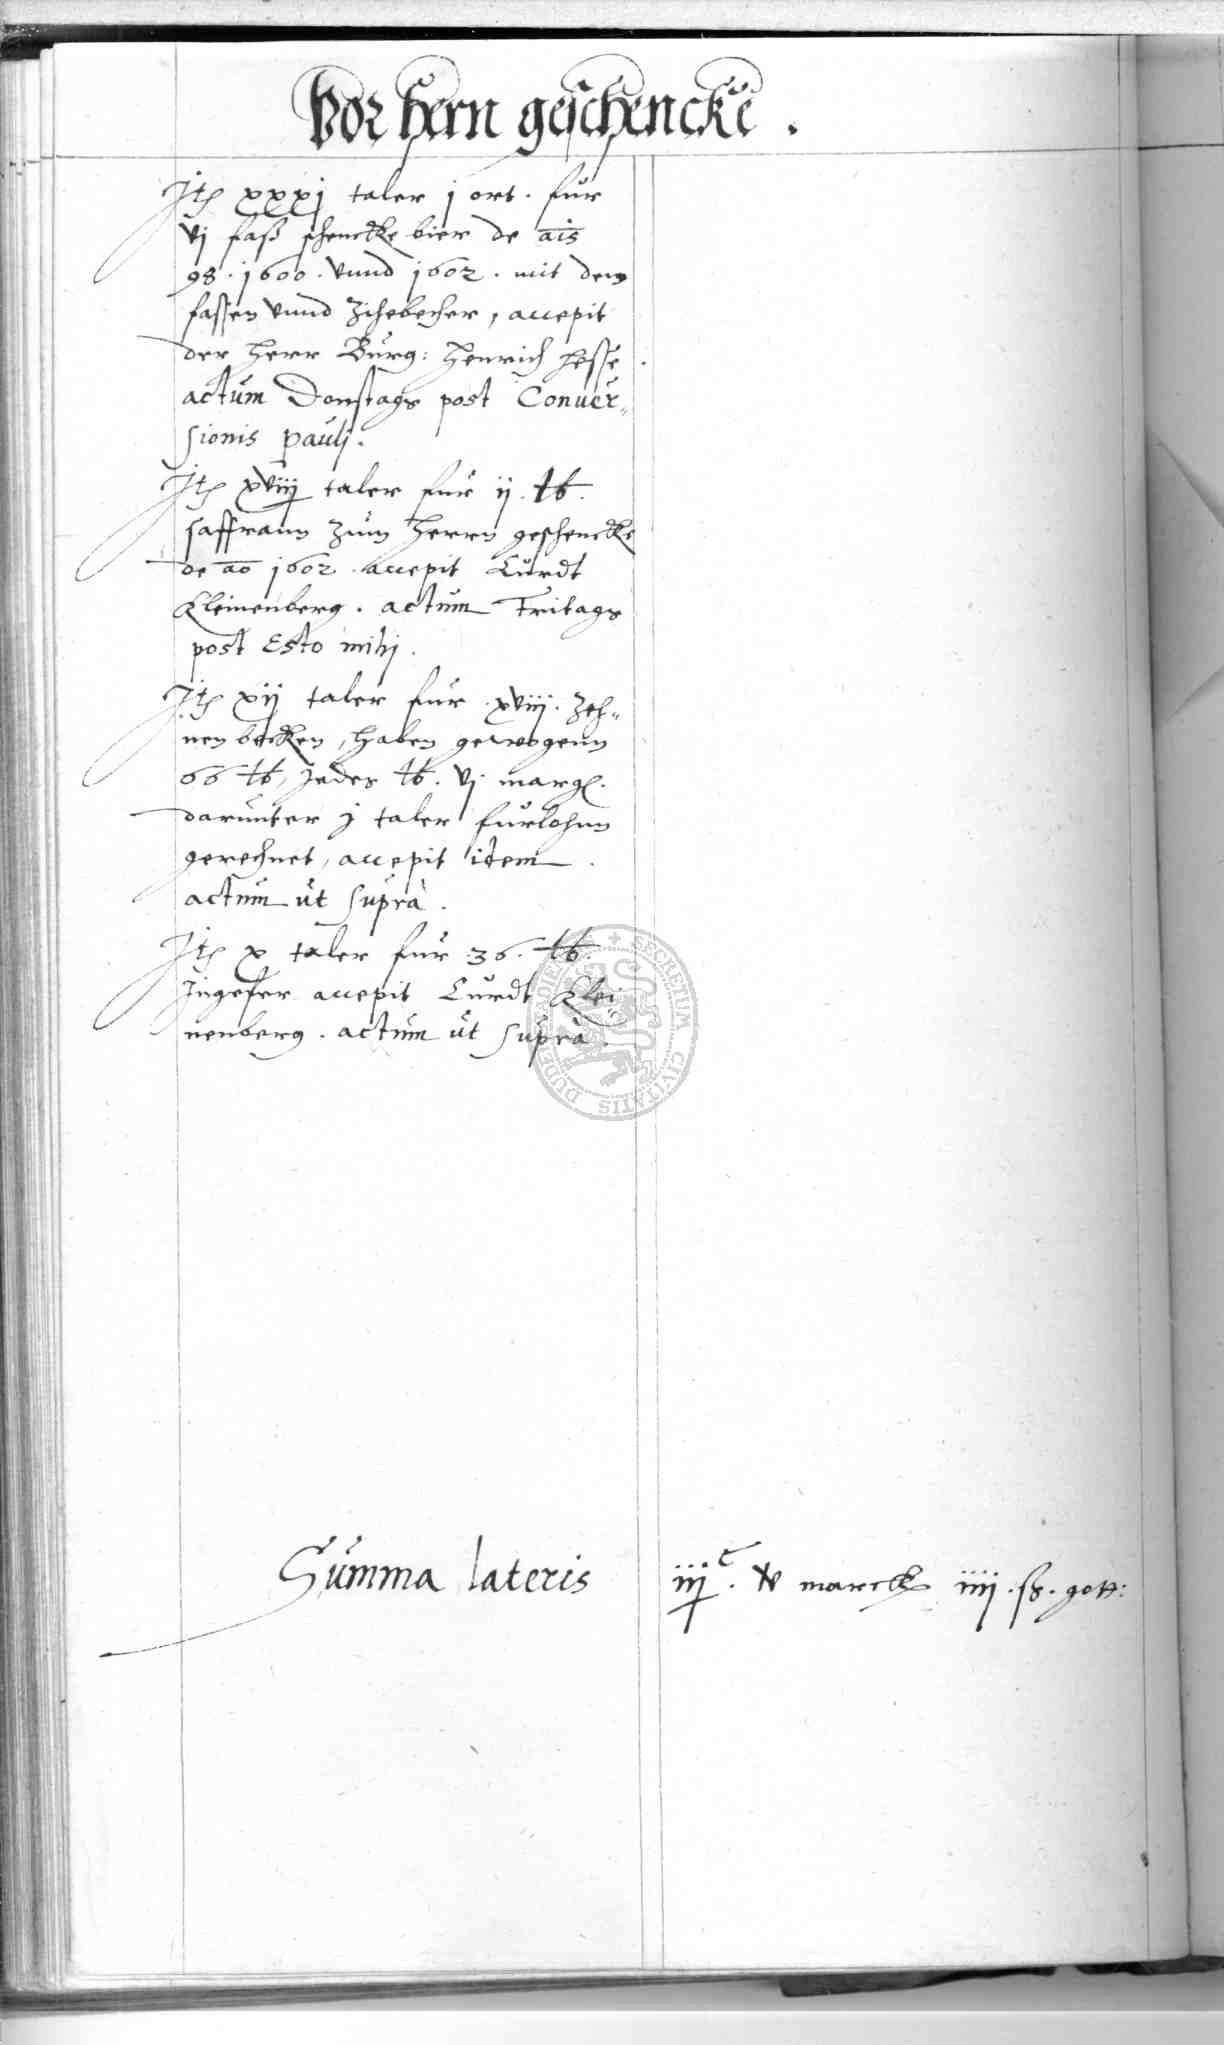 Vor hern geschencke .
Ite xxxj taler j ort . fur
vj faß schencke bier de ais
98 . 1600 . vnnd 1602 . mit den
fassen vnnd Zihebecher , accepit
der Herr Burg: Henrich Hesse .
actum Donstags post Conuer„
sionis pauli .
Ite xviij taler fur ij . tb .
saffrann Zum Herrn geschencke
de ao 1602 . accepit Curdt
Kleinenberg . actum Fritags
post Esto mihj .
Ite xij taler fur . xviij . Zeh„
nen becken , haben gewogenn
66 tb , Jedes tb . vj marg .
darunter j taler furlohnn
gerechnet , accepit idem .
actum ut supra .
Ite x taler fur . 36 . tb .
Jngefer accepit Curdt Klei
nenberg . actum ut supra .
SECRETUM CIVITATIS DUDER
Summa lateris iij c . v marck iiij . ß . gott :